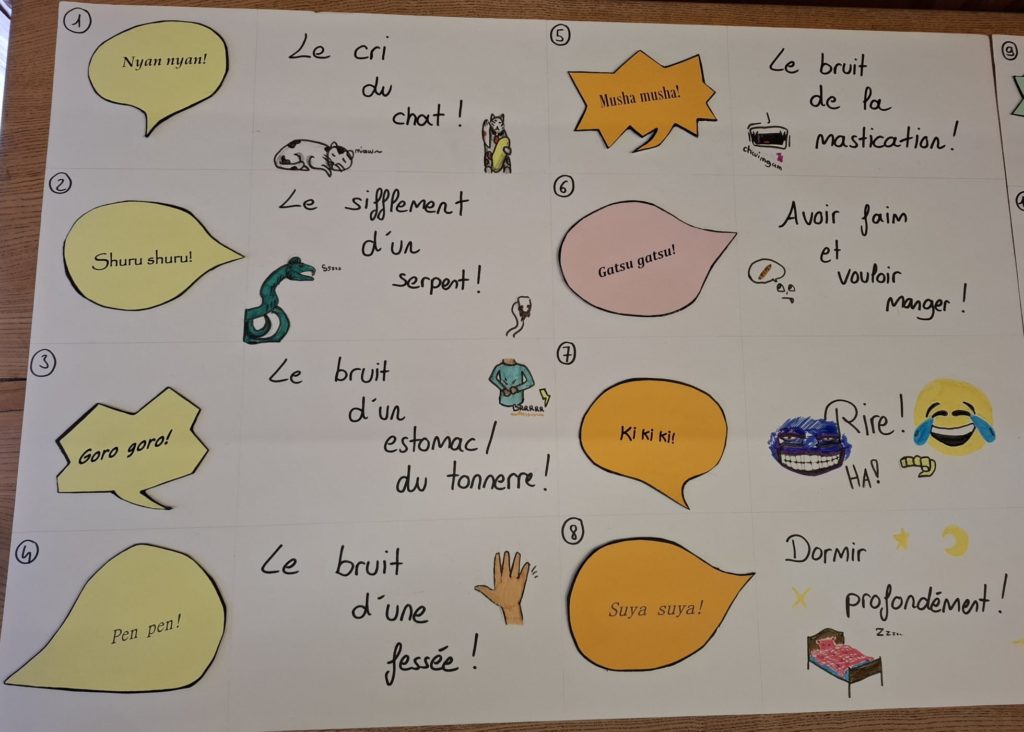 1
Nyan nyan!
Le cri
du
chat !
miaou~
2
Shuru shuru!
Le sifflement
d'un
serpent !
Sssss
3
Goro goro!
Le bruit
d'un
estomac/
du tonnerre !
BRRRRR
4
Pen pen!
Le bruit
d'une
fessée !
5
Musha musha!
Le bruit
de la
mastication !
chwimgum
6
Gatsu gatsu!
Avoir faim
et
vouloir
manger !
7
Ki ki ki!
Rire !
HA!
8
Suya suya!
Dormir
profondément !
Zzzz...
9